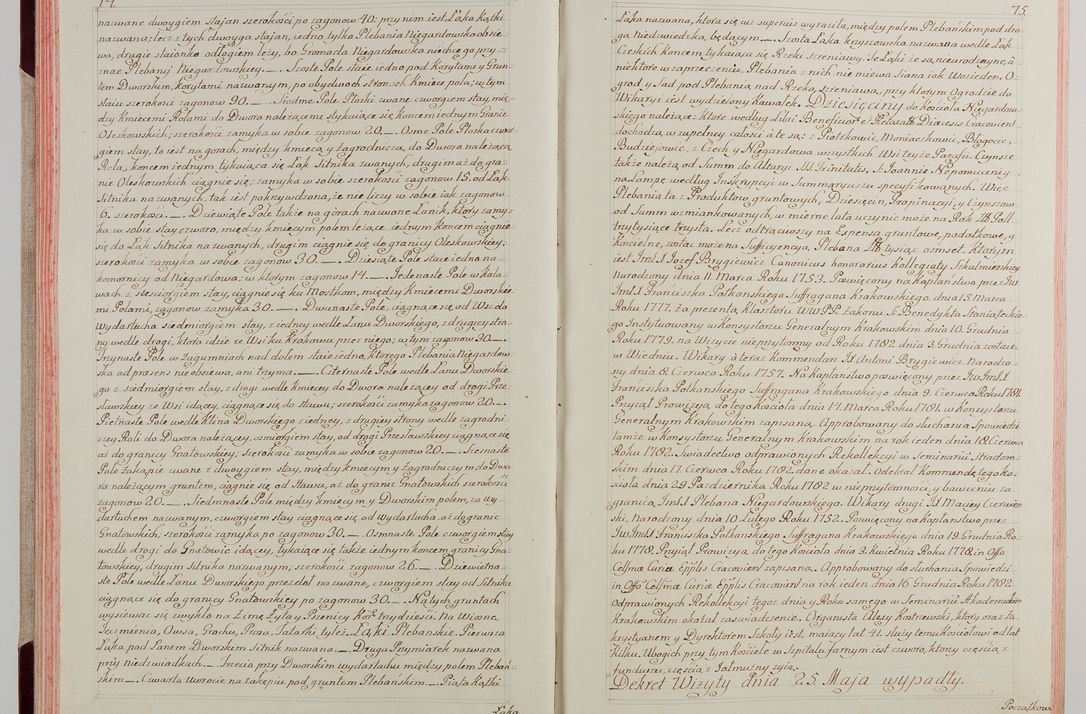 14.
nazwane dwoygiem stajan szerokości po zagonow 40: przy nim iest Łąka Kątki
nazwana; lecz z tych dwoyga stajan, iedno tylko Plebania Niegardowska obsie-
wa, drugie staionko odłogiem leży, bo Gromada Niegardowska niechce go przy-
znać Plebanij Niegardowskiey. _. Szoste Pole staie iedno pod Korytami y Grun-
tem Dworskim, Korytami nazwanym, po obydwoch stronach kmiece pola; w tym
staiu szerokości zagonow 90. _. Siodme Pole Płoski zwane czworgiem stay, mię-
dzy kmiecemi Rolami do Dwora należącemi stykaiące się koncem iednym Granic
Oleskowskich; szerokości zamyka w sobie zagonow 20. _. Osme Pole Płoska czwor-
giem stay, to iest na gorach, między kmiecą y Zagrodniczą, do Dwora należącą
Rolą, koncem iednym tykaiąca się Łąk Sitnika zwanych, drugim aż do gra-
nic Oleskowskich ciągnie się; zamyka w sobie szerokości zagonow 15. od Łąk
Sitnika nazwanych, tak iest pokrzywdzona, że nie liczy w sobie iak zagonow
6. szerokości. _. Dziewiąte Pole także na gorach nazwane Łanik, ktory zamy-
ka w sobie stay czworo, między kmiecym polem leżące, iednym Koncem ciągnie
się do Łąk Sitnika nazwanych, drugim ciągnie się do granicy Oleskowskiey;
szerokości zamyka w sobie zagonow 30. _. Dziesiąte Pole staie iedno na-
konornicy od Niegardowa; w ktorym zagonow 14. _. Jedenaste Pole w skała-
wach z sześciorgiem stay, ciągnie się ku Mostkom, między kmiecemi Dworskie-
mi Polami, zagonow zamyka 30. _. Dwunaste Pole, ciągnące się od Wsi do
Wydartucha siedmiorgiem stay, z iedney wedle Łanu Dworskiego, z drugiey stro-
ny wedle drogi, ktora idzie ze Wsi ku Krakowu przez niego; w tym zagonow 30. _.
Trzynaste Pole w Zagumniach nad dołem staie iedno, ktorego Plebania Niegardow-
ska ad præsens nie obsiewa, ani trzyma. _. Czternaste Pole wedle Łanu Dworskie-
go z siedmiorgiem stay, z drugi wedle kmiecey do Dwora należącey od drogi Prze-
sławskiey ze Wsi idącey, ciągnące się do stawu; szerokości zamyka zagonow 20. _.
Pietnaste Pole wedle Klina Dworskiego z iedney, z drugiey strony wedle zagrodni-
czey Roli do Dwora należącey, osmiorgiem stay, od drogi Przesławskiey ciągnące się
aż do granicy Gnatowskiey; szerokości zamyka w sobie zagonow 20. _. Szesnaste
Pole Zakąpie zwane z dwoygiem stay, między kmiecym y Zagrodniczym do Dwo-
ra należącym gruntem, ciągnie się od Stawu, aż do granic Gnatowskich szerokości
zagonow 20. _. Siedmnaste Pole między kmiecym y Dworskim polem, za Wy-
dartuchem nazwanym, czworgiem stay ciągnące się od Wydartucha, aż do granic
Gnatowskich; szerokości zamyka po zagonow 30. _. Osmnaste Pole czworgiem stay
wedle drogi do Gnatowic idącey, tykaiące się także iednym koncem granicy Gna-
towskiey, drugim Sitnika nazwanym; szerokości zagonow 26. _. Dziewiętna-
ste Pole wedle Łanu Dworskiego przez doł nazwane, czworgiem stay od Sitnika
ciągnące się do granicy Gnatowskiey po zagonow 30. _. Na tych gruntach
wysiewać się zwykło na Zimę Żyta y Pszenicy Korcy trzydzieści. Na Wiosnę
Jęczmienia, Owsa, Grochu, Prosa, Tatarki, tyleż. Łąki Plebanskie. Pierwsza
Łąka pod Łanem Dworskim Sitnik nazwana. _. Druga Przymiarek nazwana
przy niedzwiadkach. _. Trzecia przy Dworskim wydartuchu między polem Pleban-
skim. _. Czwarta Wrocie na zakępiu pod gruntem Plebańskim. _. Piąta Kątki
Łąka
75.
Łąka nazwana, ktora się wiż superius wyraziła, między polem Plebańskim pod dro-
gą Niedzwiedzką będącym. _. Szosta Łąka Kryszowska nazwana wedle Łąk
Czeskich koncem tykaiąca się Rzeki Szreniawy. Te Łąki że są nieurodzayne, á
niektore w zaprzeczeniu, Plebania z nich nie miewa siana iak Wozieden. O-
grod y Sad pod Plebanią nad Rzeką Szreniawą, przy ktorym Ogrodzie do
Wikaryi iest wydzielony Kawałek. Dziesięciny do Kościoła Niegardow-
skiego należące: Ktore według Libri Beneficior: & Retaxaõ Diœcesis Cracovien:
dochodzą w zupełney całości á te są: z Piotrkowic, Moniaczkowic, Błogocic,
Budziejowic, z Czech y Niegardowa wszystkich Wsi teyże Parafii. Czynsze
także należą od Summ do Altaryi SS. Trinitatis, S. Joannis Nepomuceny
na Lampę według Inskrypcyi w Summaryuszu specyfikowanych. Więc
Plebania ta z Produktow gruntowych, Dziesięcin, Propinacyi, y Czynszow
od Summ wzmiankowanych, w mierne lata uczynić może na Rok Zł. Poll.
trzy tysiące trzysta. Lecz odtrąciwszy na Expensa gruntowe, podatkowe, y
Kocielne, zostać możena Sufficyencya Plebana Zł. tysiąc osmset. Którym
iest Jmć X. Jozef Brygiewicz Canonicus honorarius Kollegiaty Szkalmierskiey
Narodzony dnia 11. Marca Roku 1753. Poswięcony na Kapłaństwo przez Jw.
Jmć X. Franciszka Potkanskiego Suffragana Krakowskiego dnia 15. Marca
Roku 1777. za prezentą Klasztoru WW. PP. Zakonu S. Benedykta Staniąteckie-
go Instytuowany w Konsystorzu Generalnym Krakowskim dnia 10. Grudnia
Roku 1779. na Wizycie nieprzytomny od Roku 1782. dnia 3. Grudnia zostaie
w Wiedniu. Wikary á teraz Kommendarz X. Antoni Brygiewicz Narodzo-
ny dnia 8. Czerwca Roku 1757. Na Kapłanstwo poswięcony przez Jw. Jmć X.
Franciszka Potkanskiego Suffragana Krakowskiego dnia 9. Czerwca Roku 1781.
Przyiął Prowizyą do tego Kościoła dnia 14. Marca Roku 1781. w Konsystorzu
Generalnym Krakowskim zapisaną. Approbowany do słuchania Spowiedzi
tamże w Konsystorzu Generalnym Krakowskim na rok ieden dnia 18. Czerwca
Roku 1782. Świadectwo odprawionych Rekollekcyi w Seminarii Stradom-
skim dnia 17. Czerwca Roku 1782. dane okazał. Odebrał Kommendę tego ko-
ścioła dnia 29. Pazdziernika Roku 1782. w nieprzytomności y bawieniu za
granicą Jmć X. Plebana Niegardowskiego. Wikary drugi X. Maciey Czerwien-
ski, Narodzony dnia 10. Lutego Roku 1752. Poswięcony na Kapłanstwo przez
Jw. Jmć X. Franciszka Potkanskiego Suffragana Krakowskiego dnia 19. Grudnia Ro-
ku 1778. Przyiął Prowizyą do tego Kościoła dnia 3. Kwietnia Roku 1778. in Offo
Celsmæ Curiæ Epplis Cracovien: zapisaną. Approbowany do słuchania Spowiedzi
in Offo Celsmæ Curiæ Epplis Cracovien: na rok ieden dnia 16. Grudnia Roku 1782.
odprawionych Rekollekcyi tegoż dnia y Roku samego w Seminarii Akademickim
Krakowskim okazał zaswiadczenie. Organista Alexy Kostrzewski, ktory oraz Za-
krystyanem y Dyrektorem Szkoły iest, maiący lat 41. służy temu Kościołowi od lat
kilku. Ubogich przy tym Kościele w Szpitalu farnym iest czworo, ktorzy częścią z
funduszu, częścią z Jałmużny żyią.
Dekret Wizyty dnia 25. Maja wypadły.
Początkowa